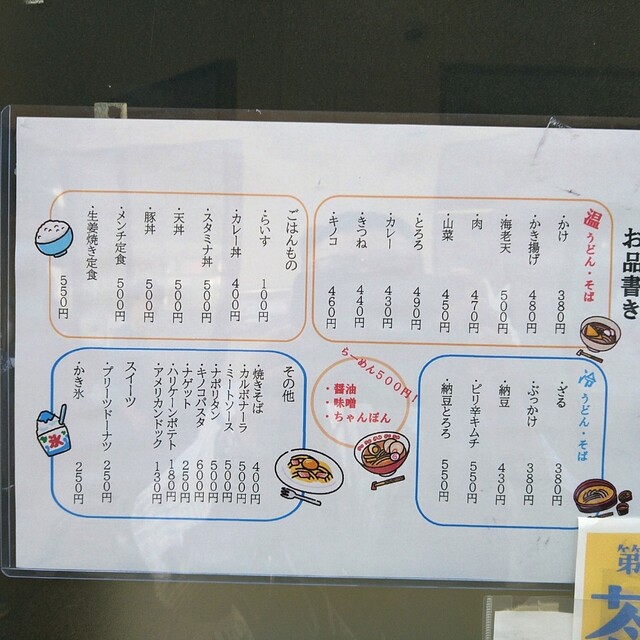 お品書き
温
うどん・そば
・かけ 380円
・かき揚げ 480円
・海老天 500円
・肉 470円
・山菜 450円
・とろろ 490円
・カレー 430円
・きつね 440円
・キノコ 460円
ごはんもの
・らいす 100円
・カレー丼 400円
・スタミナ丼 500円
・天丼 500円
・豚丼 500円
・メンチ定食 500円
・生姜焼き定食 550円
冷
うどん・そば
・ざる 380円
・ぶっかけ 380円
・納豆 430円
・ピリ辛キムチ 550円
・納豆とろろ 550円
らーめん500円!
・醤油
・味噌
・ちゃんぽん
その他
焼きそば 400円
・カルボナーラ 500円
・ミートソース 500円
ナポリタン 500円
・キノコパスタ 600円
ナゲット 250円
・ハリケーンポテト 180円
・アメリカンドック 130円
スイーツ
・ブリーツドーナツ 250円
・かき氷 250円
氷
第